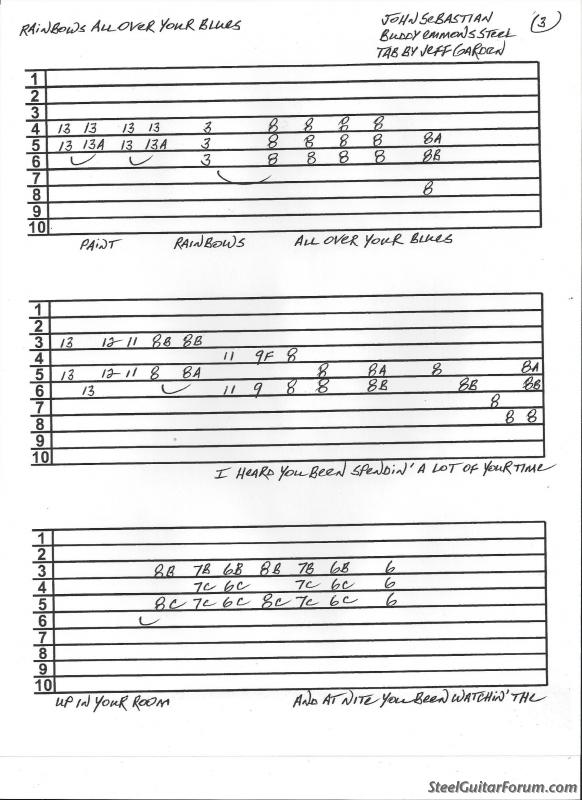 RAINBOWS ALL OVER YOUR BLUES
JOHN SEBASTIAN (3)
BUDDY EMMONS STEEL
TAB BY JEFF GARDEN
1
2
3
4 13 13 13 13 3 8 8 8 8
5 13 13A 13 13A 3 8 8 8 8 8A
6 3 8 8 8 8 8B
7
8 8
9
10
PAINT RAINBOWS ALL OVER YOUR BLUES
1
2
3 13 12-11 8B 8B
4 11 9F 8
5 13 12-11 8 8A 8 8A 8 8A
6 13 11 9 8 8 8B 8B 8B
7 8
8 8 8
9
10
I HEARD YOU BEEN SPENDIN' A LOT OF YOUR TIME
1
2
3 8B 7B 6B 8B 7B 6B 6
4 7C 6C 7C 6C 6
5 8C 7C 6C 8C 7C 6C 6
6
7
8
9
10
UP IN YOUR ROOM AND AT NITE YOU BEEN WATCHIN' THE
SteelGuitarForum.com